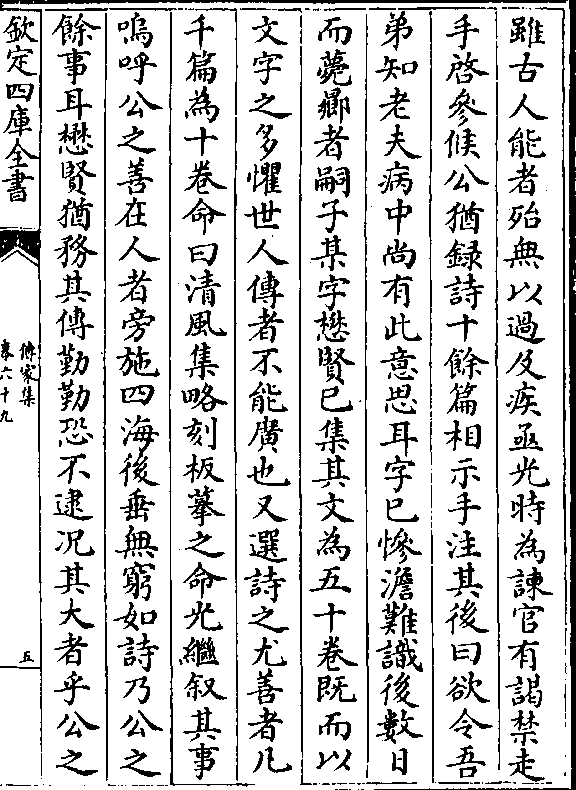 雖古人能者殆無以過及疾亟光時為諫官有謁禁走
手啓參候公猶録詩十餘篇相示手注其後曰欲令吾
弟知老夫病中尚有此意思耳字已慘澹難識後數日
而薨鄉者嗣子某字懋賢已集其文為五十卷既而以
文字之多懼世人傳者不能廣也又選詩之尤善者凡
千篇為十卷命曰清風集略刻板摹之命光繼叙其事
嗚呼公之善在人者旁施四海後垂無窮如詩乃公之
餘事耳懋賢猶務其傳勤勤恐不逮况其大者乎公之
欽定四庫全書
傳家集
卷六十九
五